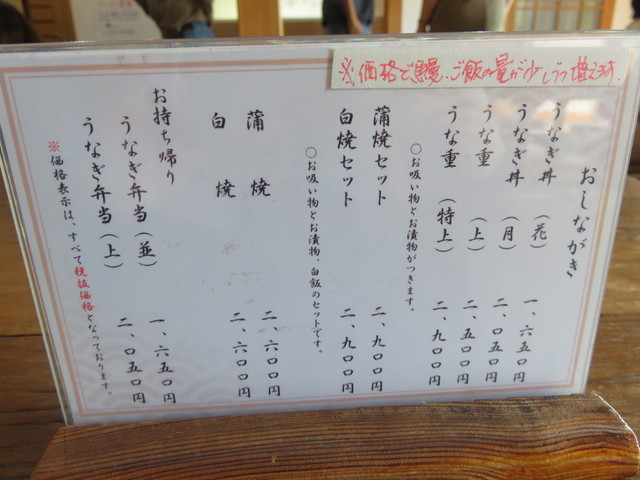 ※価格で鰻、ご飯の量が少しづつ増えます。
おしながき
うなぎ丼（花） 一、六五〇円
うなぎ丼（月） 二、〇五〇円
うな重（上） 二、五〇〇円
うな重（特上） 二、九〇〇円
〇お吸い物とお漬物がつきます。
蒲焼セット 二、九〇〇円
白焼セット 二、九〇〇円
〇お吸い物とお漬物、白飯のセットです。
蒲焼 二、六〇〇円
白焼 二、六〇〇円
お持ち帰り
うなぎ弁当（並） 一、六五〇円
うなぎ弁当（上） 二、〇五〇円
※価格表示は、すべて税抜価格となっております。